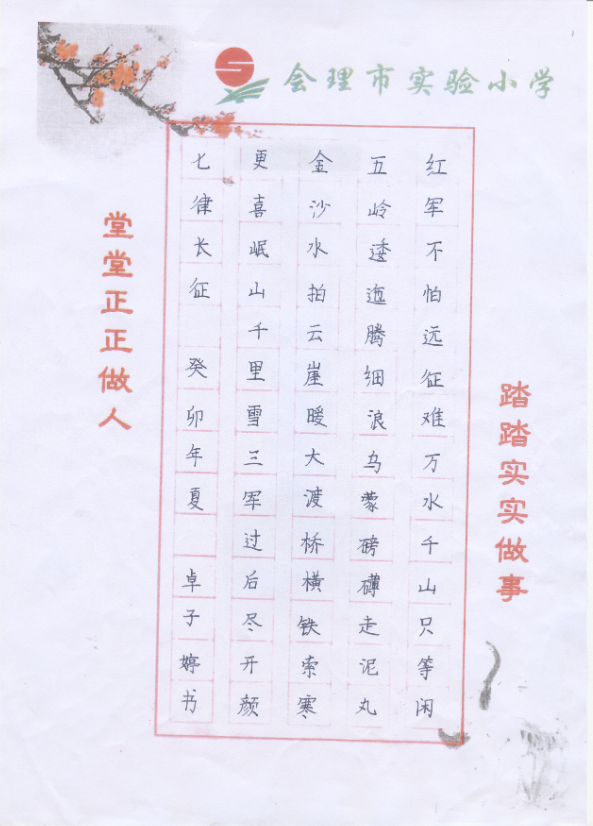 会理市实验小学
堂堂正正做人
红军不怕远征难万水千山只等闲
五岭逶迤腾细浪乌蒙磅礴走泥丸
金沙水拍云崖暖大渡桥横铁索寒
更喜岷山千里雪三军过后尽开颜
七律长征 癸卯年夏 卓子婷书
踏踏实实做事